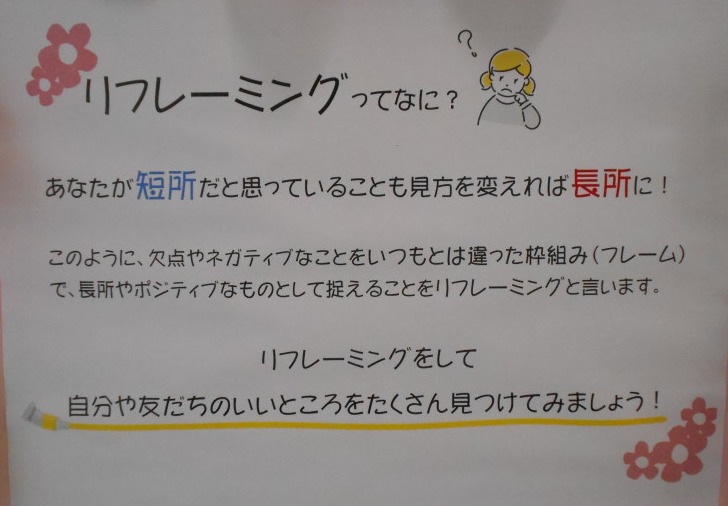 リフレーミングってなに？
あなたが短所だと思っていることも見方を変えれば長所に！
このように、欠点やネガティブなことをいつもとは違った枠組み（フレーム）
で、長所やポジティブなものとして捉えることをリフレーミングと言います。
リフレーミングをして
自分や友だちのいいところをたくさん見つけてみましょう！